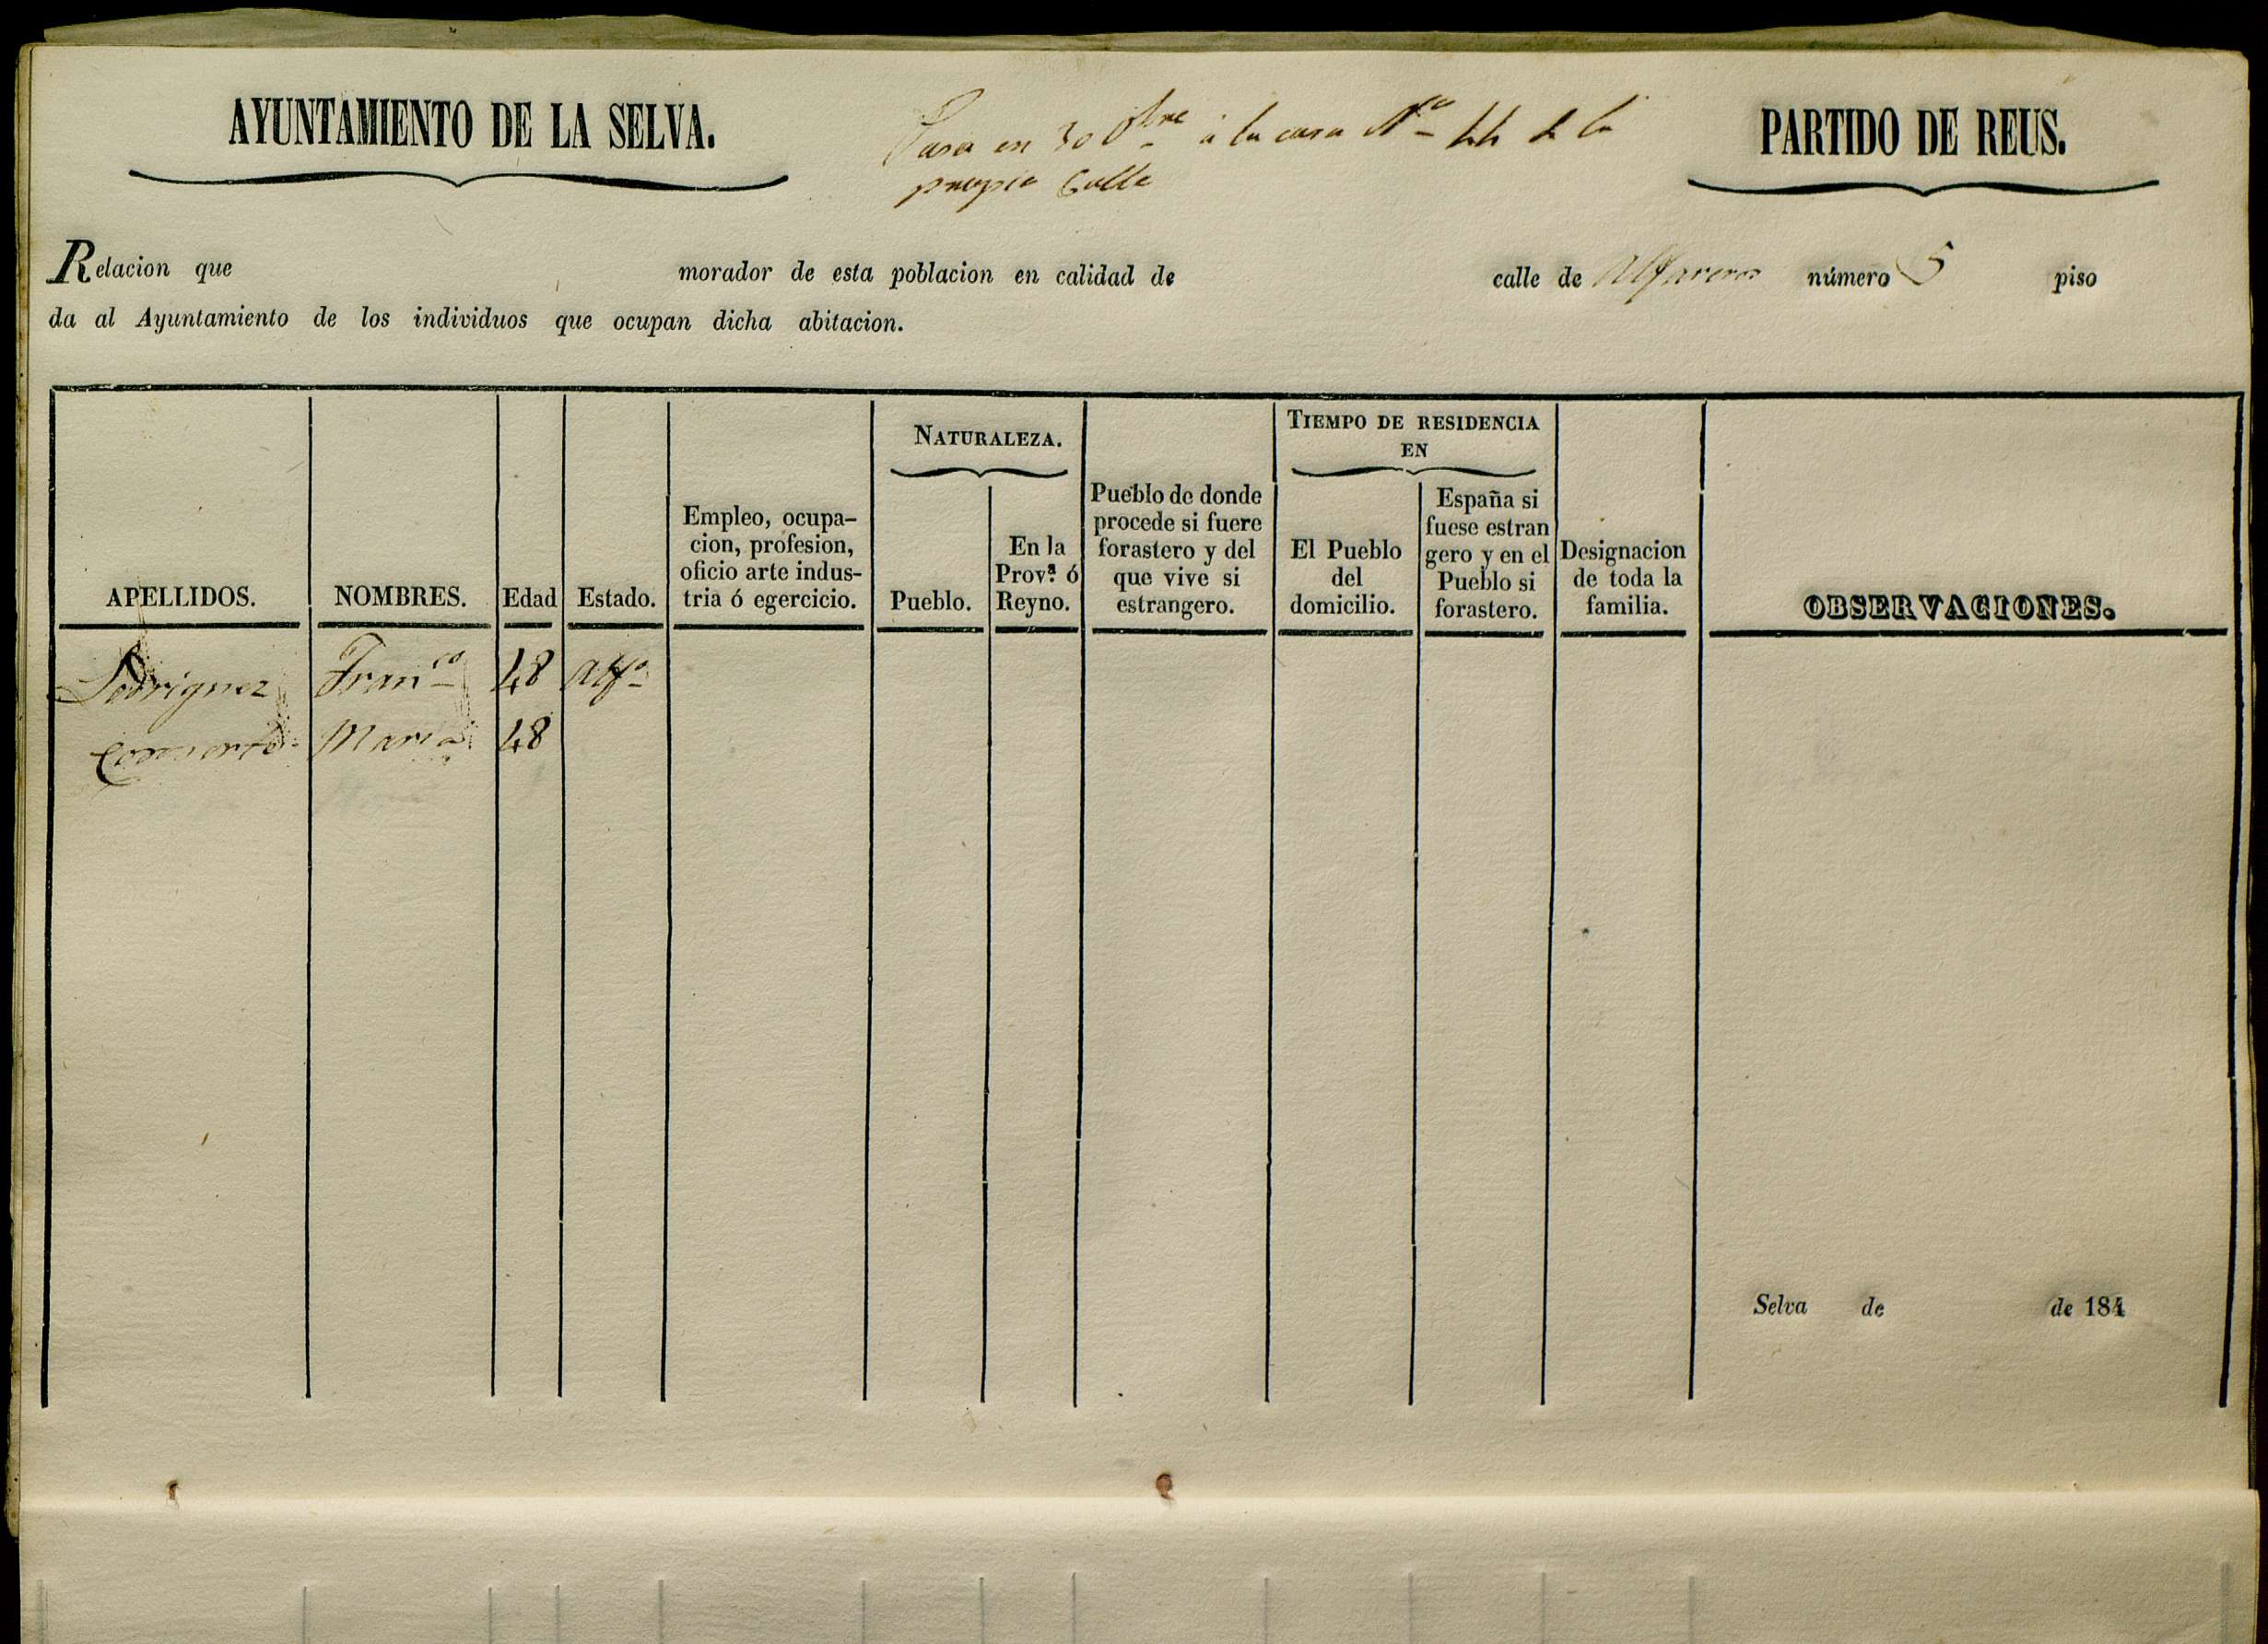 AYUNTAMIENTO DE LA SELVA.
Pasa en 30 Obre á la casa Nº 44 de la
propia Calle
PARTIDO DE REUS.
Relacion que morador de esta poblacion en calidad de calle de Alfareros número 5 piso
da al Ayuntamiento de los individuos que ocupan dicha abitacion.
APELLIDOS.
NOMBRES.
Edad
Estado.
Empleo, ocupa-
cion, profesion,
oficio arte indus-
tria ó egercicio.
NATURALEZA.
Pueblo.
En la
Prov.ª ó
Reyno.
Pueblo de donde
procede si fuere
forastero y del
que vive si
estrangero.
TIEMPO DE RESIDENCIA
EN
El Pueblo
del
domicilio.
España si
fuese estran
gero y en el
Pueblo si
forastero.
Designacion
de toda la
familia.
OBSERVACIONES.
Rodriguez Franco 48 Alfo
Consorte María 48
Selva de de 184